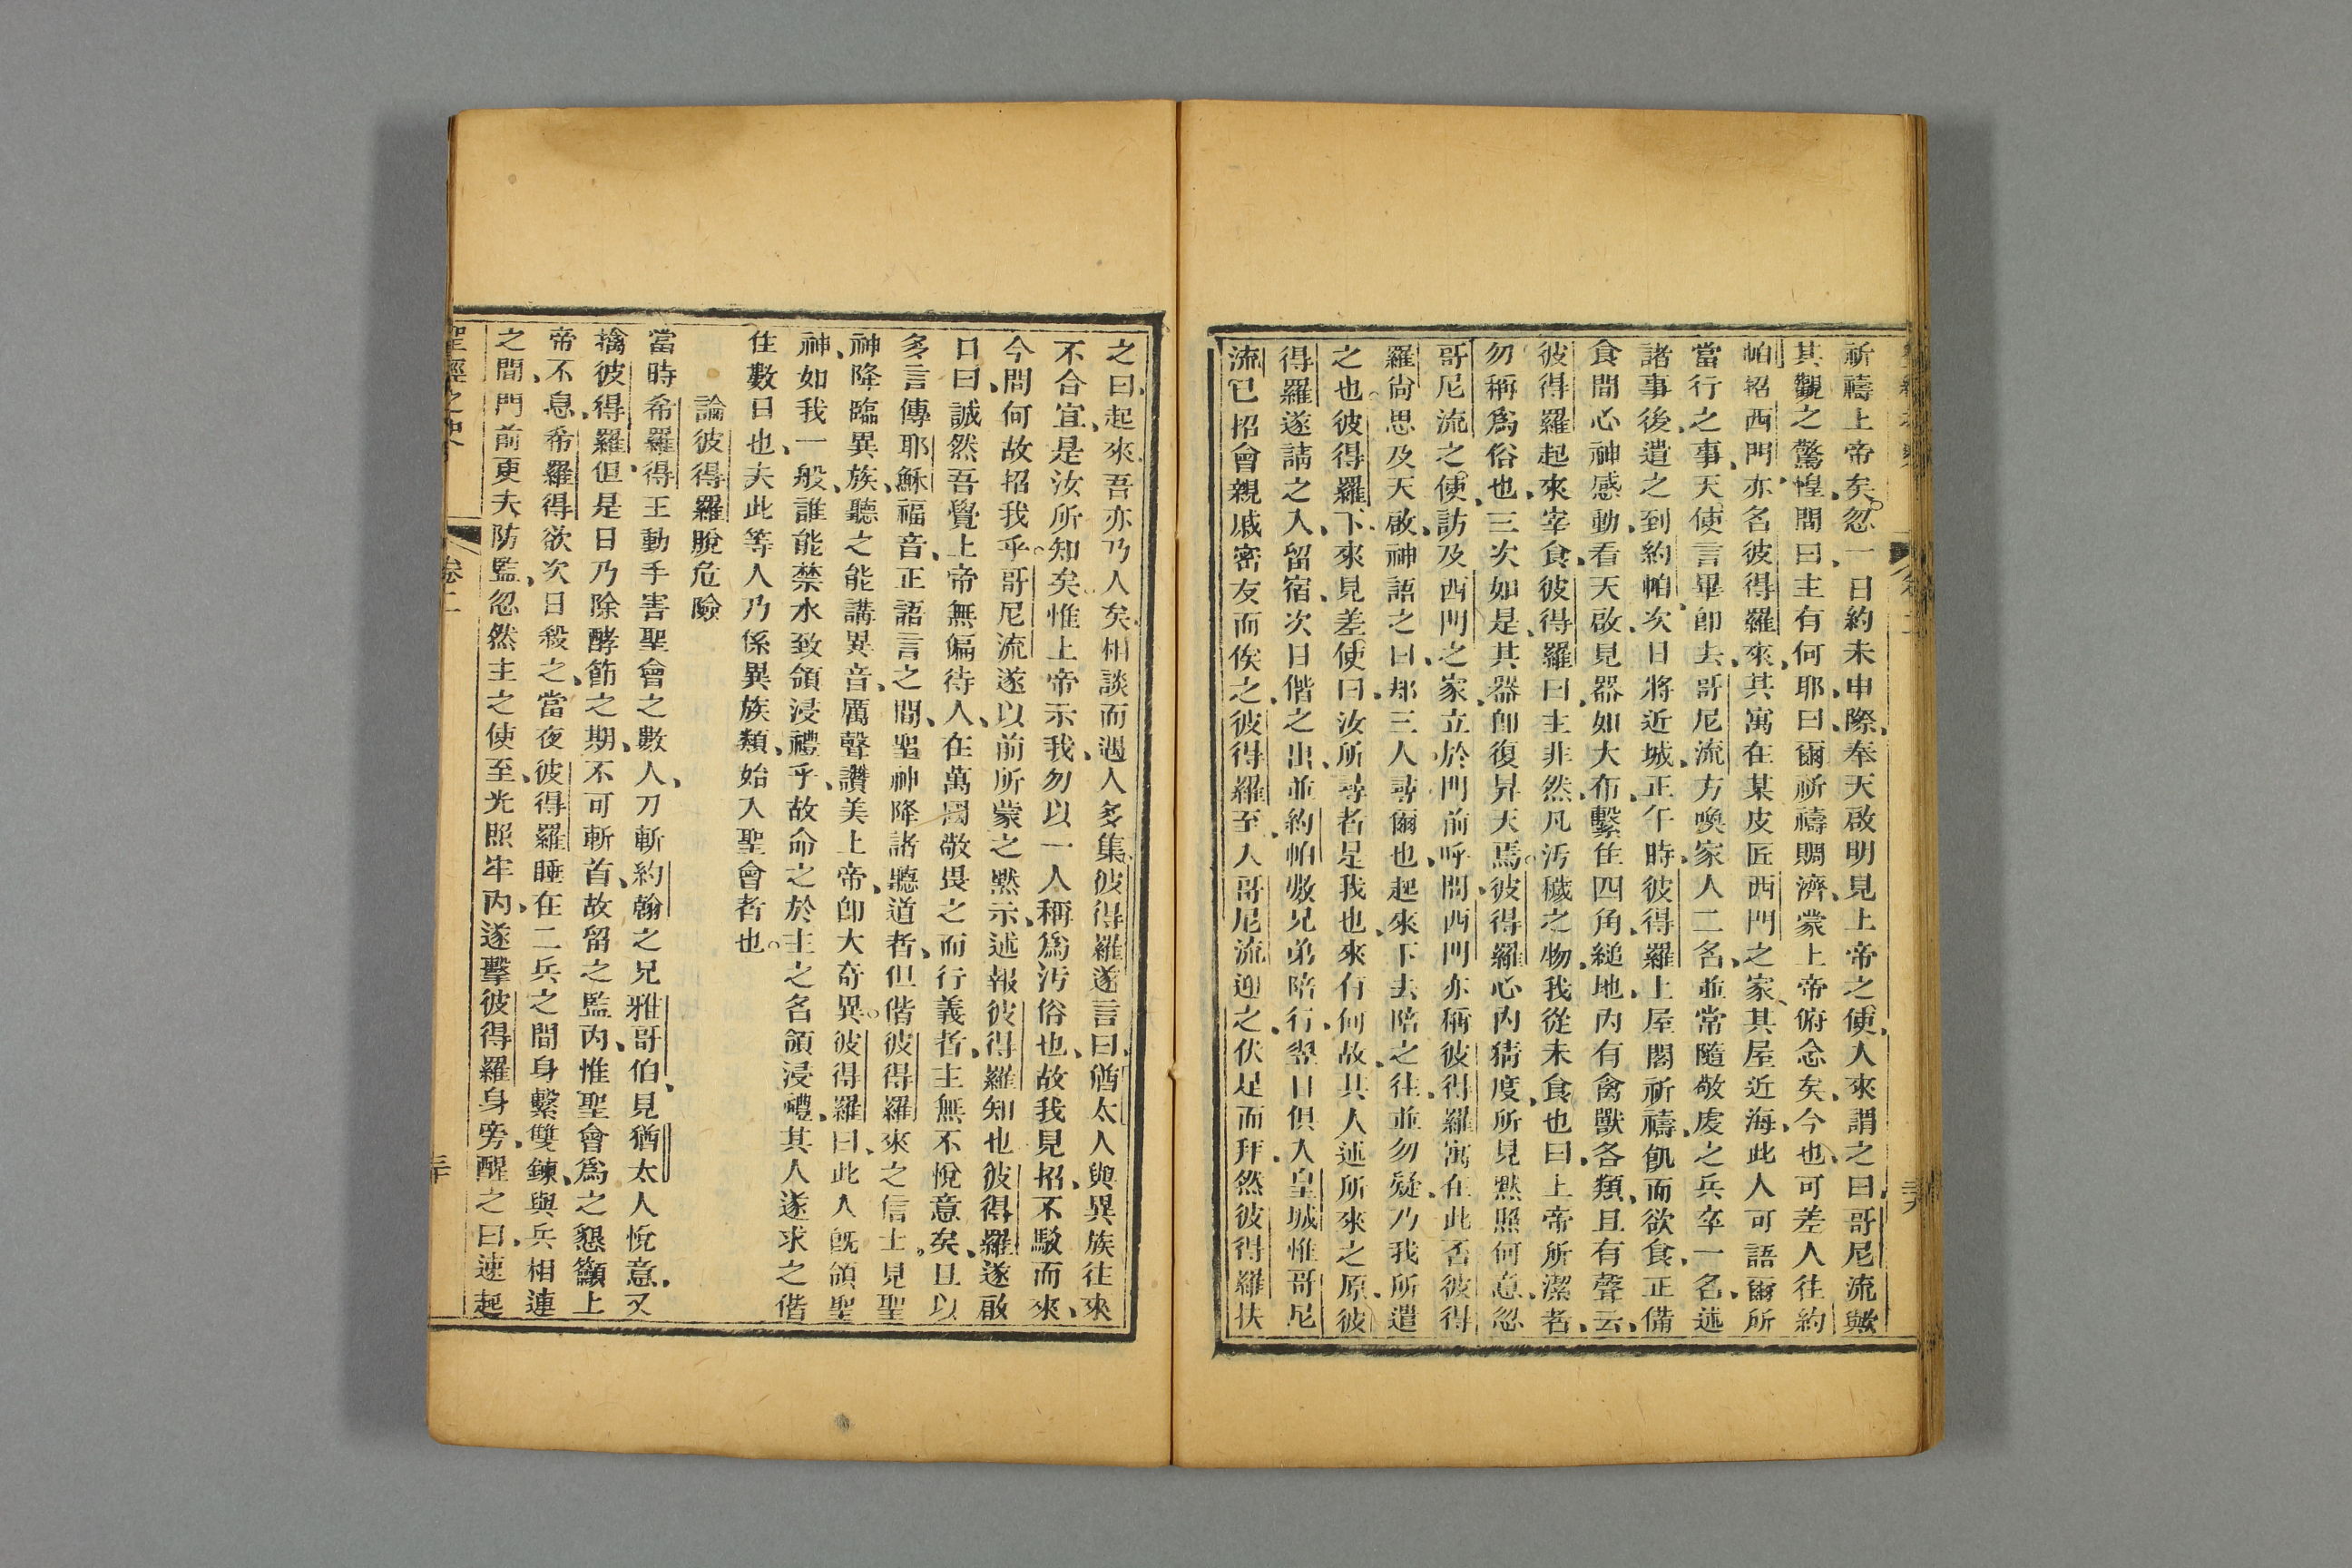 祈禱上帝矣。忽一日約未申際、奉天啟明見上帝之使、入來謂之曰、哥尼流歟
其觀之驚惶、問曰、主有何耶、曰、爾祈禱賙濟、蒙上帝俯念矣、今也、可差人往約
帕招西門、亦名彼得羅來、其寓在某皮匠西門之家、其屋近海、此人可語爾所
當行之事、天使言畢卽去、哥尼流方喚家人二名、並常隨敬虔之兵卒一名、述
諸事後、遣之到約帕、次日將近城、正午時、彼得羅上屋閣祈禱、飢而欲食、正備
食間心神感動、看天啟、見器如大布、繫住四角、縋地、內有禽獸各類、且有聲云、
彼得羅起來、宰食、彼得羅曰、主非然、凡汚穢之物、我從未食也曰、上帝所潔者、
勿稱爲俗也、三次如是、其器卽復昇天焉。彼得羅心內猜度、所見默照何意、忽
哥尼流之使、訪及西門之家、立於門前呼問、西門亦稱彼得羅寓在此否彼得
羅尚思及天啟、神語之曰、那三人尋爾也、起來下去陪之往、並勿疑、乃我所遣
之也。彼得羅下來見差使曰、汝所尋者是我也、來有何故、其人述所來之原、彼
得羅遂請之入、留宿、次日偕之出、並約帕數兄弟陪行、翌日俱入皇城、惟哥尼
流已招會親戚密友而俟之、彼得羅至、入哥尼流迎之、伏足而拜、然彼得羅扶
之曰、起來、吾亦乃人矣、相談而遇人多集、彼得羅遂言曰、猶太人與異族往來
不合宜、是汝所知矣、惟上帝示我、勿以一人稱爲汚俗也、故我見招、不駁而來、
今問何故招我乎。哥尼流遂以前所蒙之默示、述報彼得羅知也彼得羅遂啟
口曰、誠然吾覺上帝無偏待人、在萬國敬畏之而行義者、主無不悅意矣、且以
多言傳耶穌福音、正語言之間、聖神降諸聽道者、但偕彼得羅來之信士、見聖
神降臨異族、聽之能講異音、厲聲讚美上帝、卽大奇異。彼得羅曰、此人旣領聖
神、如我一般、誰能禁水致領浸禮乎、故命之於主之名領浸禮、其人遂求之偕
住數日也、夫此等人乃係異族類、始入聖會者也。
論彼得羅脫危險
當時希羅得王動手害聖會之數人、刀斬約翰之兄雅哥伯、見猶太人悅意、又
擒彼得羅、但是日乃除酵節之期、不可斬首、故留之監內、惟聖會爲之懇籲上
帝不息、希羅得欲次日殺之、當夜彼得羅睡在二兵之間身繫雙鍊、與兵相連
之間、門前更夫防監、忽然主之使至、光照牢內、遂擊彼得羅身旁、醒之曰、速起
聖經之史
卷二
三十